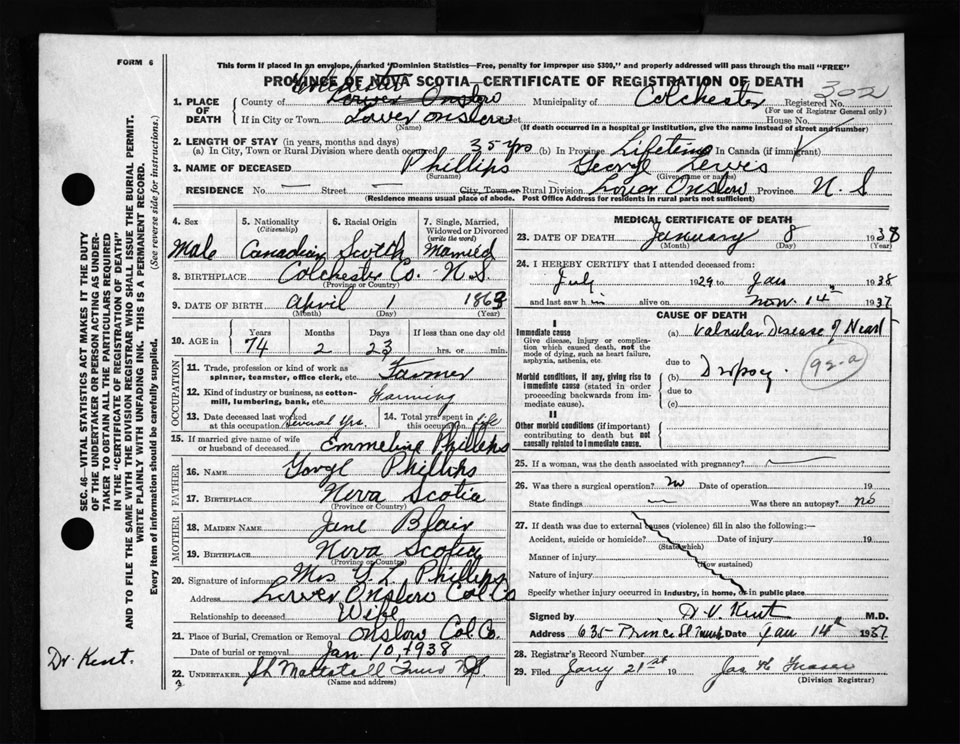 FORM 6
This form if placed in an envelope, marked "Dominion Statistics—Free, penalty for improper use $300," and properly addressed will pass through the mail "FREE"
PROVINCE OF NOVA SCOTIA—CERTIFICATE OF REGISTRATION OF DEATH
302
1. PLACE OF DEATH County of Colchester Lower Onslow Municipality of Colchester Registered No.
(For use of Registrar General only)
If in City or Town Lower Onslow House No.
(Name) (If death occurred in a hospital or institution, give the name instead of street and number)
2. LENGTH OF STAY (in years, months and days)
(a) In City, Town or Rural Division where death occurred 35 yrs (b) In Province Lifetime In Canada (if immigrant)
3. NAME OF DECEASED Phillips George Lewis
(Surname) (Given name or names)
RESIDENCE No. — Street — City, Town or Rural Division Lower Onslow Province N.S
(Residence means usual place of abode. Post Office Address for residents in rural parts not sufficient)
4. Sex Male
5. Nationality (Citizenship) Canadian
6. Racial Origin Scotch
7. Single, Married, Widowed or Divorced (write the word) Married
8. BIRTHPLACE Colchester Co. N.S.
(Province or Country)
9. DATE OF BIRTH April 1 1863
(Month) (Day) (Year)
10. AGE in Years 74 Months 2 Days 23 If less than one day old hrs. or min.
OCCUPATION
11. Trade, profession or kind of work as spinner, teamster, office clerk, etc. Farmer
12. Kind of industry or business, as cotton-mill, lumbering, bank, etc. Farming
13. Date deceased last worked at this occupation Several yrs.
14. Total yrs. spent in this occupation life
15. If married give name of wife or husband of deceased Emmeline Phillips
FATHER
16. NAME George Phillips
17. BIRTHPLACE Nova Scotia
(Province or Country)
MOTHER
18. MAIDEN NAME Jane Blair
19. BIRTHPLACE Nova Scotia
(Province or Country)
20. Signature of informant Mrs G. L. Phillips
Address Lower Onslow Col Co
Relationship to deceased Wife
21. Place of Burial, Cremation or Removal Onslow Col. Co.
Date of burial or removal Jan. 10, 1938
22. UNDERTAKER
(Name and address)
MEDICAL CERTIFICATE OF DEATH
23. DATE OF DEATH January 8 1938
(Month) (Day) (Year)
24. I HEREBY CERTIFY that I attended deceased from:
July 1929 to Jan 1938
and last saw him alive on Nov. 14th 1937
CAUSE OF DEATH
I
Immediate cause
Give disease, injury or complication which caused death, not the mode of dying, such as heart failure, asphyxia, asthenia, etc
(a) Valvular Disease of Heart
due to
Morbid conditions, if any, giving rise to immediate cause (stated in order proceeding backwards from immediate cause).
(b) Dropsy.
92-a
due to
(c)
II
Other morbid conditions (if important) contributing to death but not causally related to immediate cause.
25. If a woman, was the death associated with pregnancy?
26. Was there a surgical operation? no Date of operation 19
State findings — Was there an autopsy? no
27. If death was due to external causes (violence) fill in also the following:—
Accident, suicide or homicide? Date of injury 19
(State which)
Manner of injury
(How sustained)
Nature of injury
Specify whether injury occurred in Industry, in home, or in public place
Signed by D. V. Kent M.D.
Address 635 Prince St Truro Date Jan 14th 1937
28. Registrar's Record Number
29. Filed Jany 21st 19 Jas H Fraser
(Division Registrar)
SEC. 46—VITAL STATISTICS ACT MAKES IT THE DUTY OF THE UNDERTAKER OR PERSON ACTING AS UNDERTAKER TO OBTAIN ALL THE PARTICULARS REQUIRED IN THE "CERTIFICATE OF REGISTRATION OF DEATH"
AND TO FILE THE SAME WITH THE DIVISION REGISTRAR WHO SHALL ISSUE THE BURIAL PERMIT.
WRITE PLAINLY WITH UNFADING INK. THIS IS A PERMANENT RECORD.
Every item of information should be carefully supplied. (See reverse side for instructions.)
Dr. Kent.